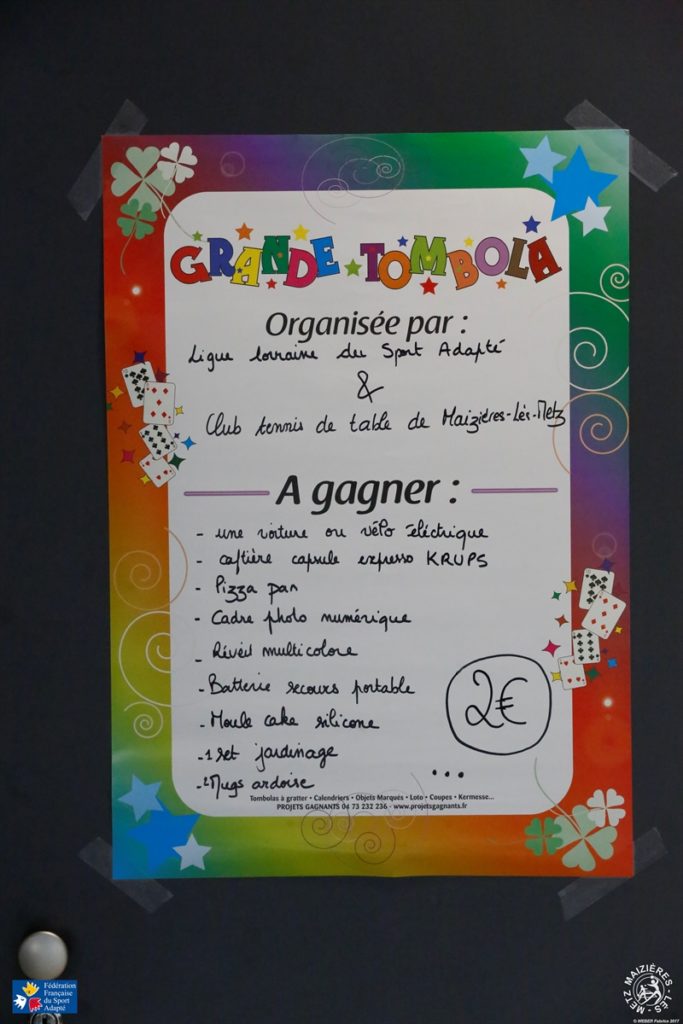 GRANDE TOMBOLA
Organisée par :
Ligue lorraine du Sport Adapté
&
Club tennis de table de Maizières-Lès-Metz
A gagner :
- une voiture ou vélo éléctrique
- caftière capsule expresso KRUPS
- Pizza pan
- Cadre photo numérique
- Réveil multicolore
- Batterie secours portable
- Moule cake silicone
2€
- 1 set jardinage
- 2 Mugs ardoise
...
Tombolas à gratter • Calendriers • Objets Marqués • Loto • Coupes • Kermesse...
PROJETS GAGNANTS 04 73 232 236 - www.projetsgagnants.fr
Fédération
Française
du Sport
Adapté
METZ MAIZIÈRES LÈS
© WEBER Fabrice 2017